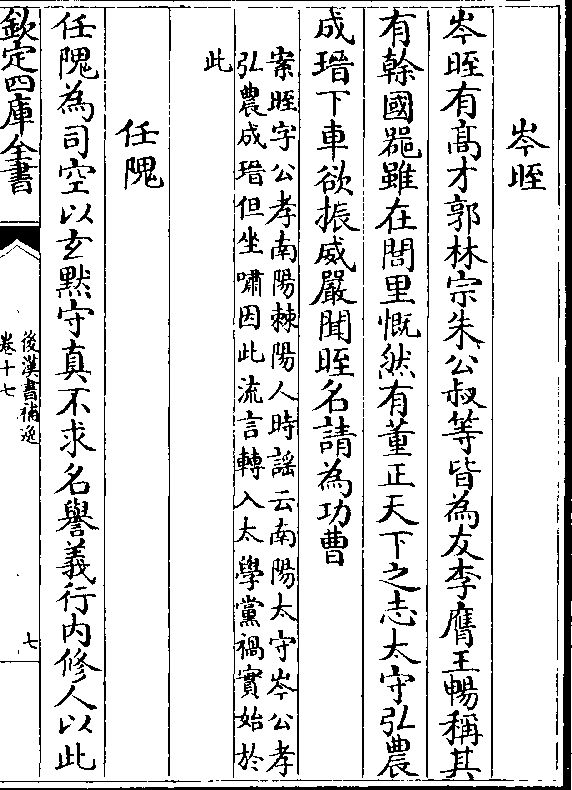 岑晊
岑晊有髙才郭林宗朱公叔等皆為友李膺王暢稱其
有幹國噐雖在閭里慨然有董正天下之志太守弘農
成瑨下車欲振威嚴聞晊名請為功曹
案晊字公孝南陽棘陽人時謡云南陽太守岑公孝
弘農成瑨但坐嘯因此流言轉入太學黨禍實始於
此
任隗
任隗為司空以玄默守真不求名譽義行内修人以此
欽定四庫全書
後漢書補逸
卷十七
七